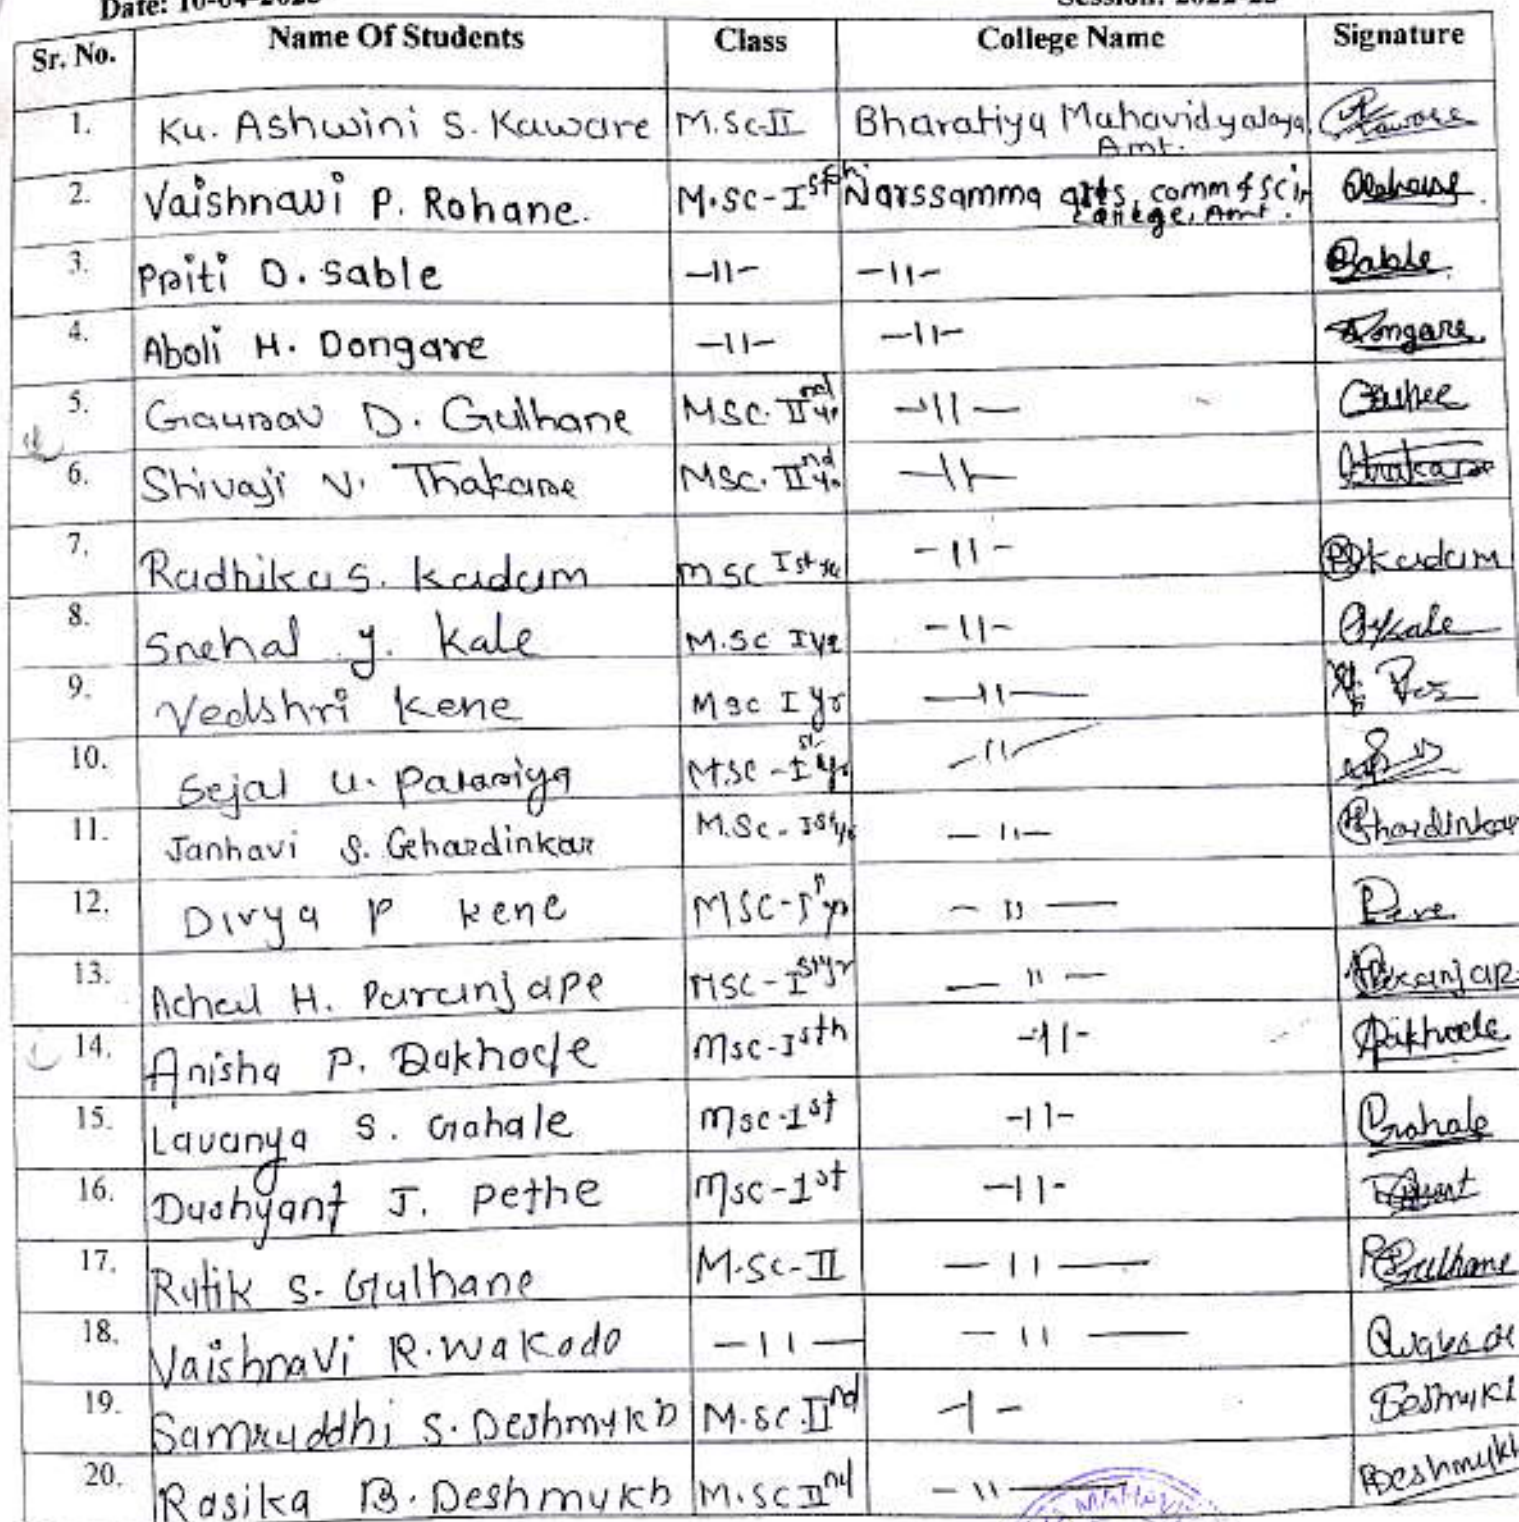 Date: 10-04-2023 Session: 2022-23
Sr. No. Name Of Students Class College Name Signature
1. Ku. Ashwini S. Kaware M.Sc-II Bharatiya Mahavidyalaya, Amt. Kaware
2. Vaishnavi P. Rohane. M.Sc-I Narssamma arts, comm & sci college, Amt.
3. Priti D. Sable -11- -11- Sable
4. Aboli H. Dongare -11- -11- Dongare
5. Gaurav D. Gulhane MSC. IInd yr -11-
6. Shivaji V. Thakare MSC. IInd yr -11- Thakare
7. Radhika S. Kadam MSC Ist yr -11- Kadam
8. Snehal Y. Kale M.Sc I yr -11- Kale
9. Vedshri Kene Msc I yr -11-
10. Sejal U. Parasiya MSC - Ist yr -11-
11. Janhavi S. Ghardinkar M.Sc - Ist yr -11- Ghardinkar
12. Divya P Kene MSC-Ist yr -11-
13. Achal H. Paranjape MSC-Ist yr -11- Paranjape
14. Anisha P. Dakhode Msc-Isth -11- Dakhode
15. Lavanya S. Gahale Msc-1st -11- Gahale
16. Dushyant J. Pethe Msc-1st -11-
17. Rutik S. Gulhane M.Sc-II -11- Gulhane
18. Vaishnavi R. Wakode -11- -11- Wakode
19. Samruddhi S. Deshmukh M.Sc. IInd -1- Deshmukh
20. Rasika B. Deshmukh M.Sc IInd -11- Deshmukh